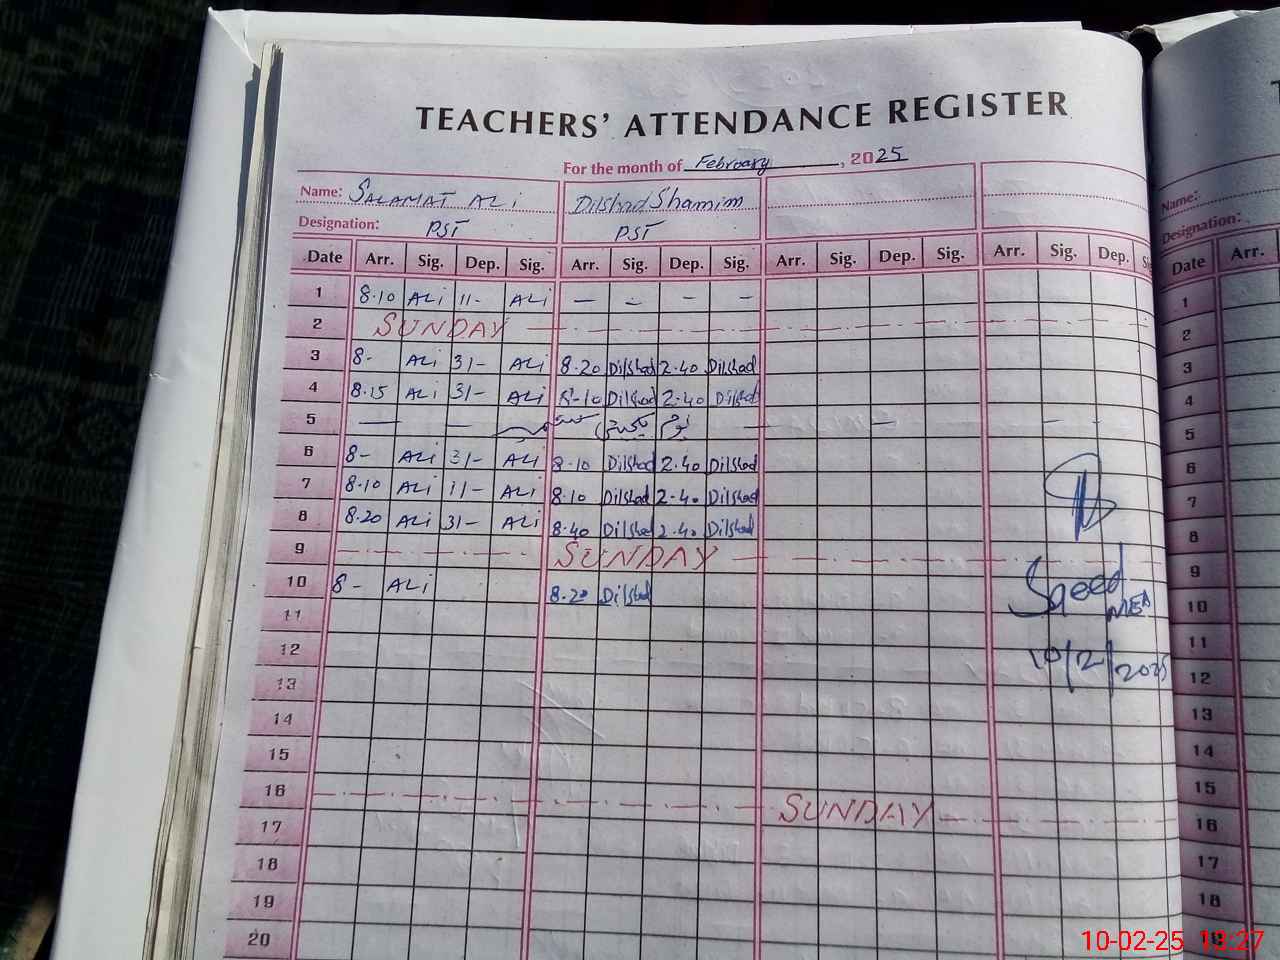 TEACHERS' ATTENDANCE REGISTER
For the month of February, 2025
Name: SALAMAT ALi Dilshad Shamim
Designation: PST PST
Date Arr. Sig. Dep. Sig. Arr. Sig. Dep. Sig. Arr. Sig. Dep. Sig. Arr. Sig. Dep.
1 8.10 ALi 11- ALi — — — —
2 SUNDAY
3 8- ALi 31- ALi 8.20 Dilshad 2.40 Dilshad
4 8.15 ALi 31- ALi 8-10 Dilshad 2.40 Dilshad
5
6 8- ALi 31- ALi 8-10 Dilshad 2.40 Dilshad
7 8.10 ALi 11- ALi 8.10 Dilshad 2-40 Dilshad
8 8.20 ALi 31- ALi 8.40 Dilshad 2.40 Dilshad
9 SUNDAY
10 8- ALi 8.20 Dilshad
11
12
13
14
15
16 SUNDAY
17
18
19
20
Saeed
MEA
10/2/2025
Name:
Designation:
Date Arr.
1
2
3
4
5
6
7
8
9
10
11
12
13
14
15
16
17
18
10-02-25 13:27